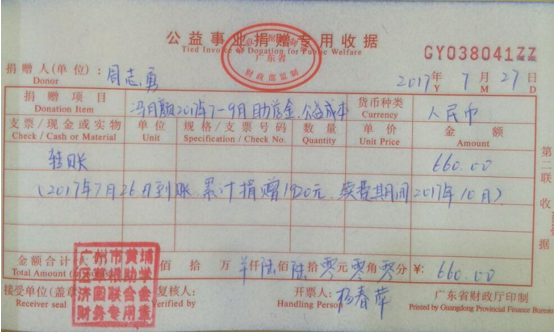 公益事业捐赠专用收据
Tied Invoice of Donation for Public Welfare
广东省
财政部监制
GY038041ZZ
捐赠人(单位): 周志勇
Donor
2017年 7月 27日
Y M D
捐赠项目 2017年7-9月助学金、公益成本 货币种类 人民币
Donation Item Currency
支票/现金或实物 单位 规格/支票号码 数量 单价 金额
Check / Cash or Material Unit Specification / Check No. Quantity Unit Price Amount
转账 660.00
(2017年7月26日到账,累计捐赠1920元,续费期间2017年10月)
金额合计 佰 拾 万 仟陆佰陆拾零元零角零分 ¥: 660.00
Total Amount
广州市黄埔
区草根助学
济困联合会
财务专用章
接受单位(盖章 复核人: 开票人: 杨春萍 广东省财政厅印制
Receiver seal Verified by Handling Person Printed by Guangdong Provincial Finance Bureau
第二联 收据